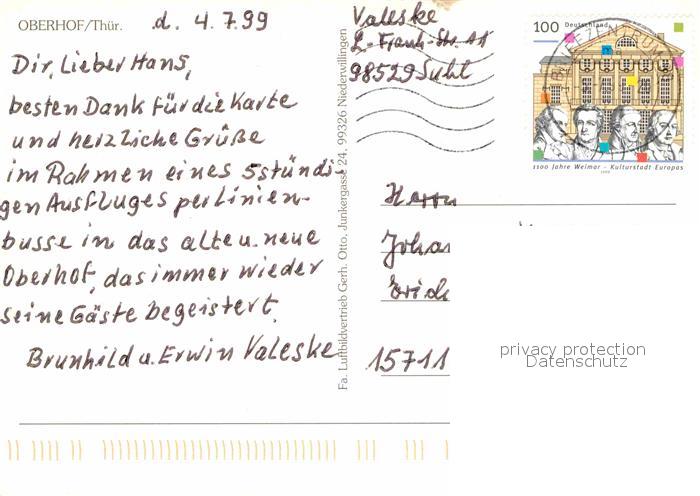 OBERHOF/Thür.
d. 4.7.99
Dir, Lieber Hans,
besten Dank für die Karte
und herzliche Grüße
im Rahmen eines 5stündi-
gen Ausfluges per Linien-
busse in das alte u. neue
Oberhof, das immer wieder
seine Gäste begeistert.
Brunhild u. Erwin Valeske
Fa. Luftbildvertrieb Gerh. Otto, Junkergasse 24, 99326 Niederwillingen
Valeske
98529 Suhl
100 Deutschland
1100 Jahre Weimar - Kulturstadt Europas
1999
Herrn
Johan
Erich
15711
privacy protection
Datenschutz